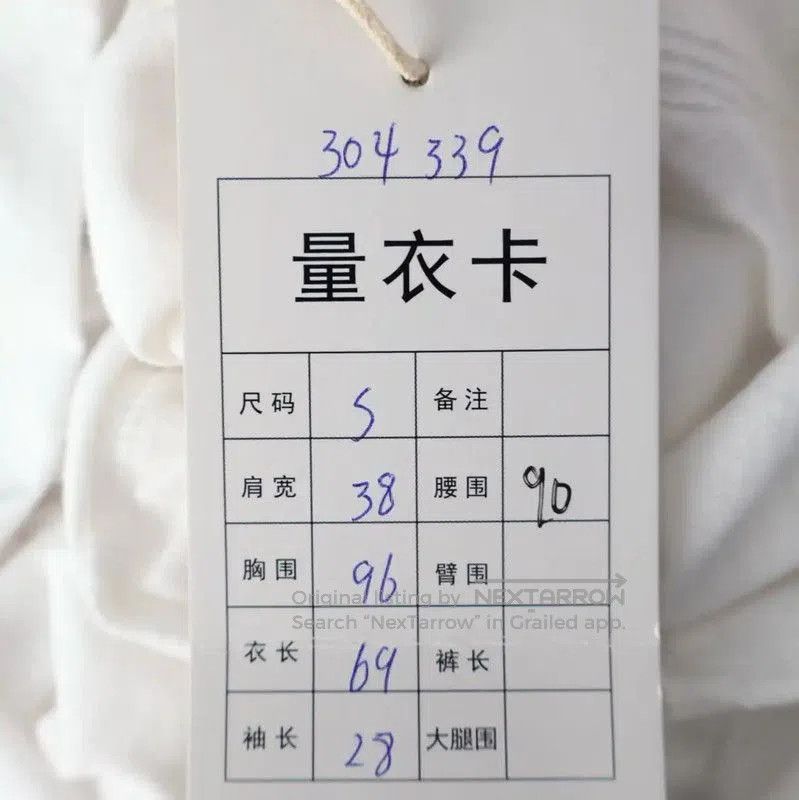 304 339
量衣卡
尺码 S 备注
肩宽 38 腰围 90
胸围 96 臂围
Original listing by NEXTARROW
Search "NexTarrow" in Grailed app.
衣长 69 裤长
袖长 28 大腿围